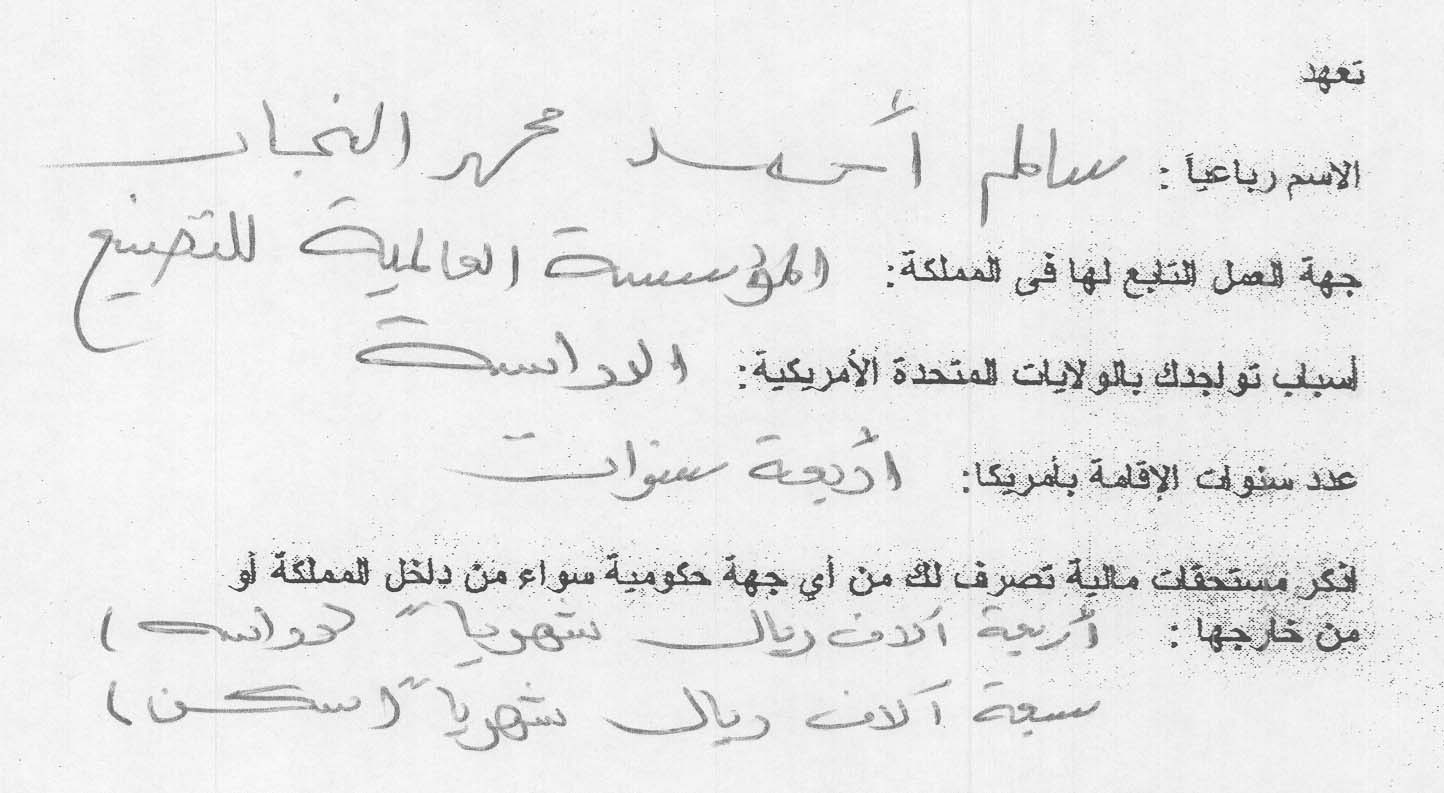 تعهد
الاسم رباعياً : سالم أحمد محمد النجار
جهة العمل التابع لها فى المملكة: المؤسسة العالمية للتصنيع
أسباب تواجدك بالولايات المتحدة الأمريكية: الدراسة
عدد سنوات الإقامة بأمريكا: أربعة سنوات
اذكر مستحقات مالية تصرف لك من أي جهة حكومية سواء من داخل المملكة أو
من خارجها : أربعة آلاف ريال شهرياً (دراسه)
سبعة آلاف ريال شهرياً (سكن)